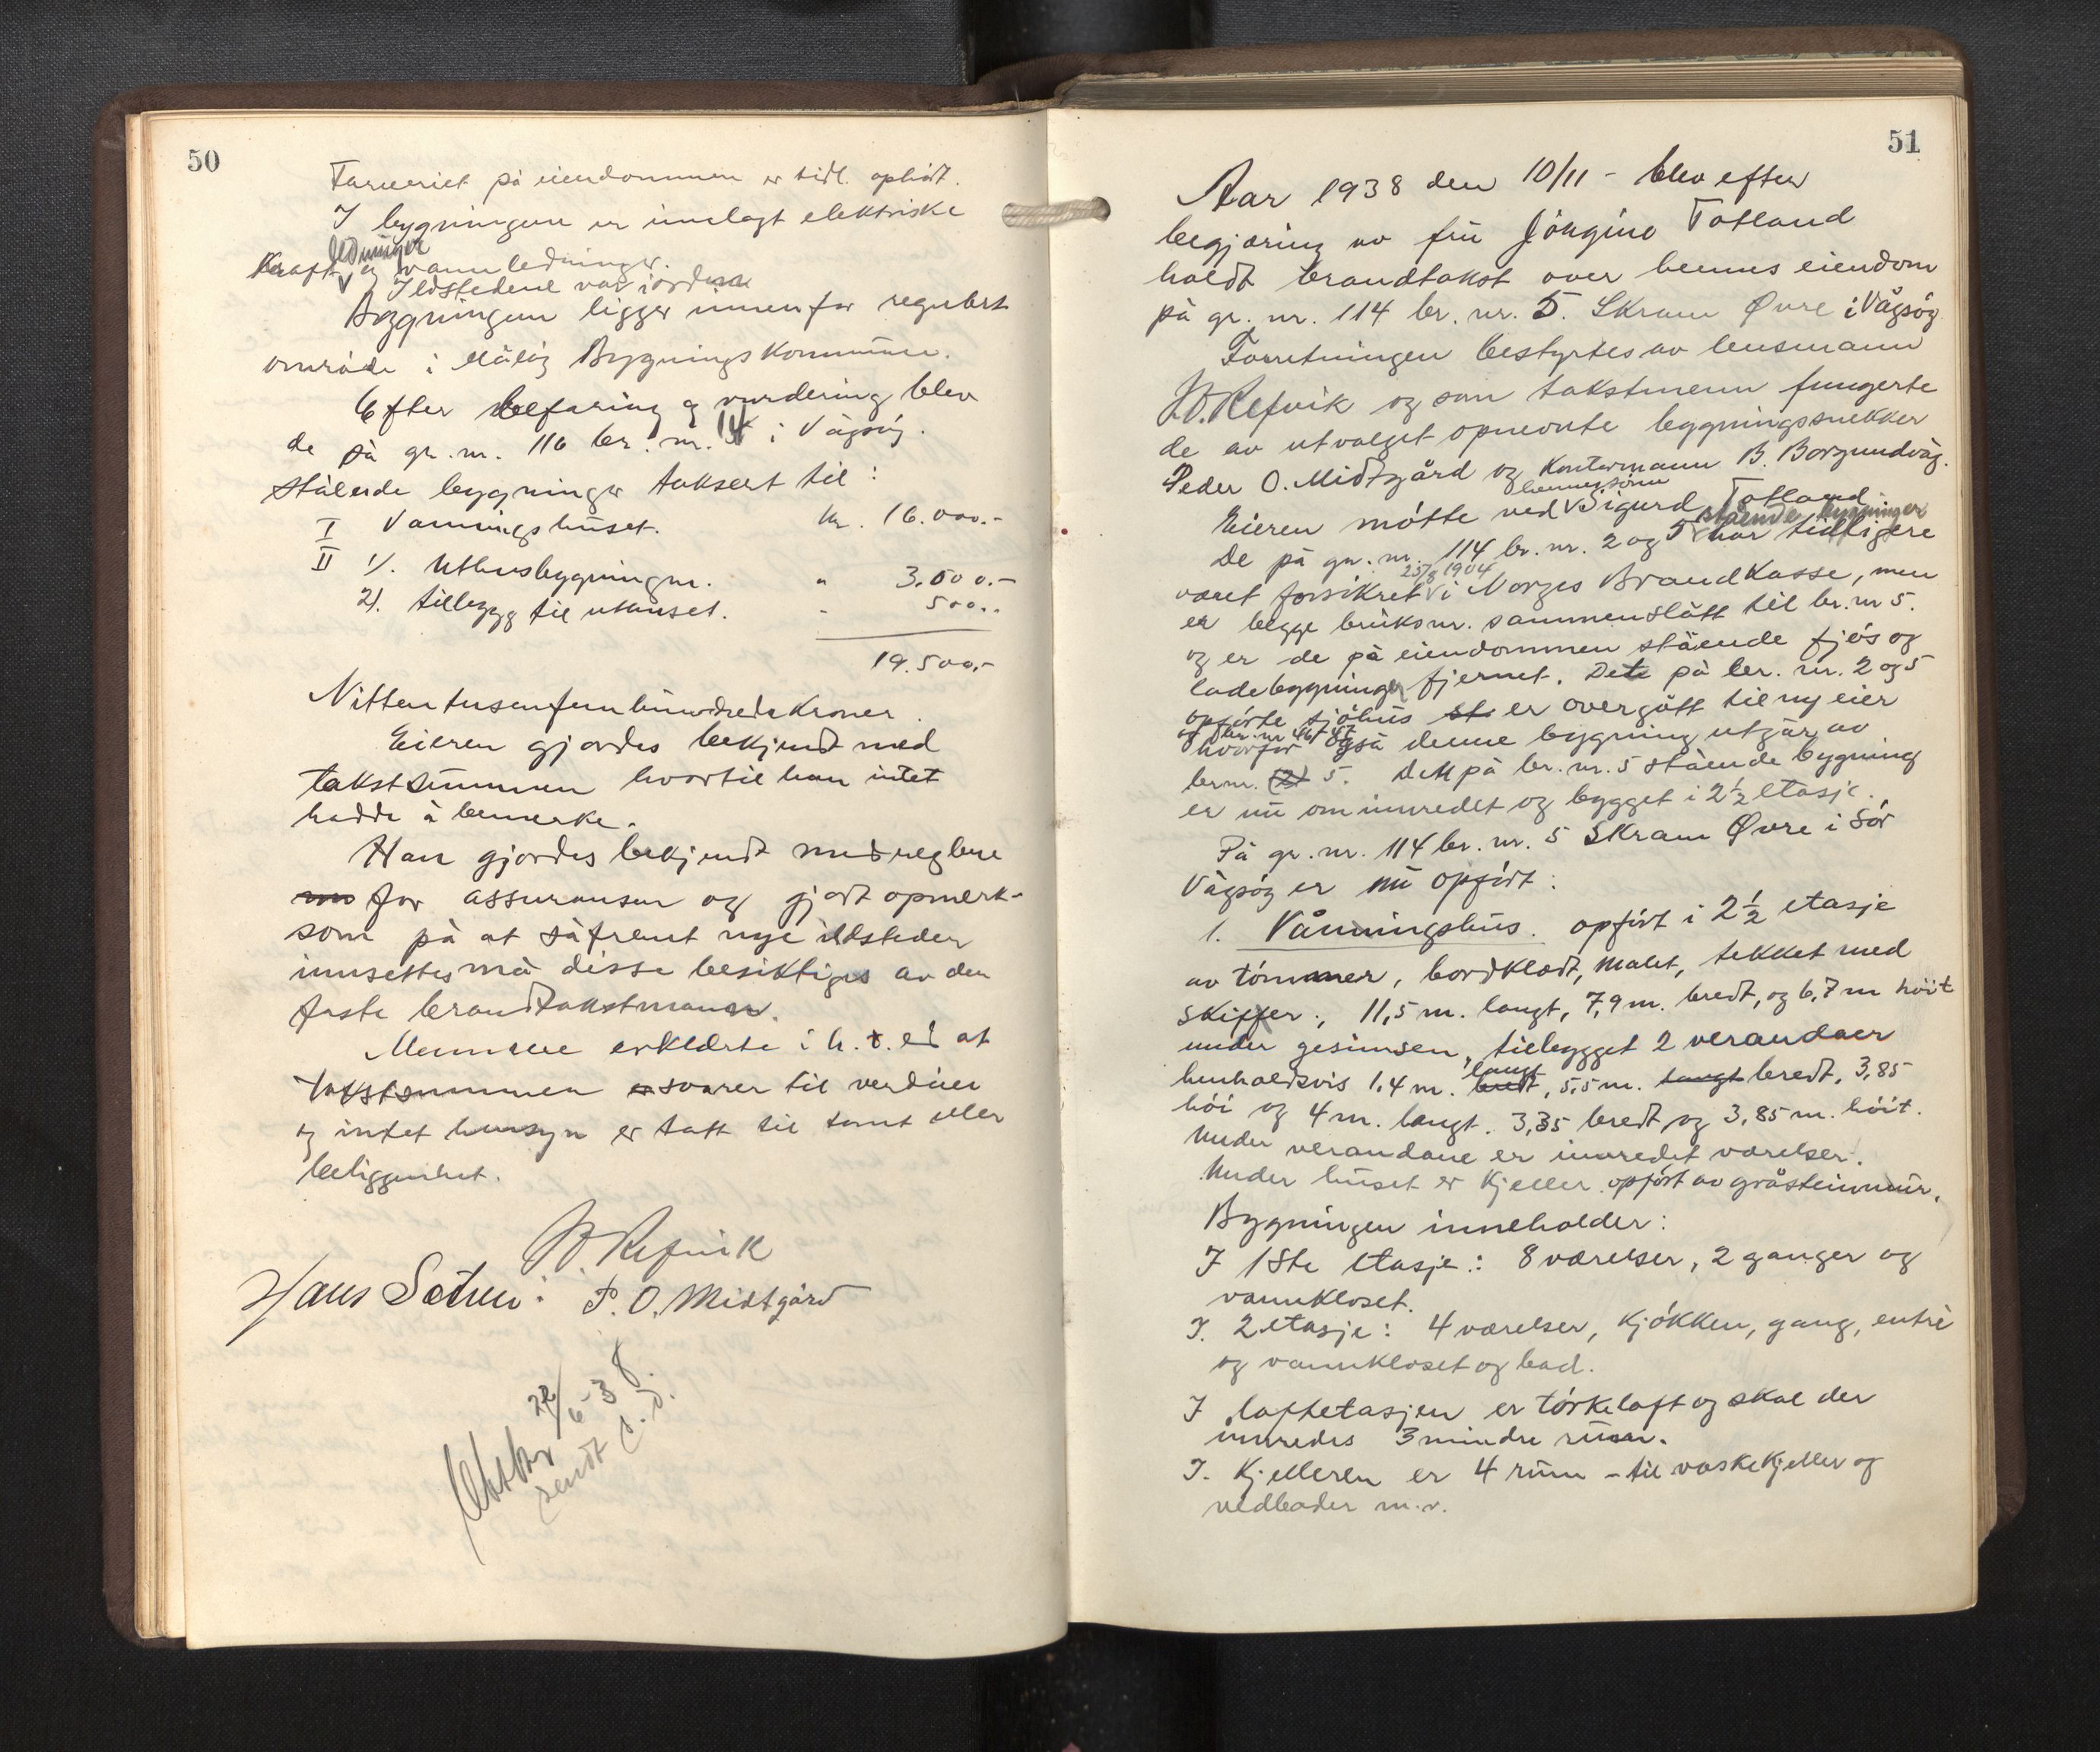 50
Farveriet på eiendommen er tidl. ophört.
I bygningene er innlagt elektriske
ledninger
Kraft og vannledninger.
Ildstedene var i orden
Bygningene ligger innenfor regulert
område i Måløy Bygningskommune.
Efter befaring og vurdering blev
de på gr. nr. 116 br. nr. 14 i Vågsøy.
stående bygninger taksert til:
I Vanningshuset. kr. 16.000.-
II 1/. Uthusbygningen. " 3.000.-
2/. tillbygg til uthuset. - 500.-
19.500,-
Nittentusenfemhundrede kroner.
Eieren gjordes bekjendt med
takstsummen hvortil han intet
hadde å bemerke.
Han gjordes bekjendt med reglene
for assuransen og gjort opmerk-
som på at såfremt nye ildsteder
innsettes må disse besiktiges av den
faste brandtakstmann.
Mennene erklærte i h. t. ed at
takstsummen svarer til verdien
og intet hensyn er tatt til tomt eller
beliggenhet.
W. Refvik
Hans Sætren: P. O. Midtgård
22/6-38.
sendt
51
Aar 1938 den 10/11 - blev efter
begjæring av fru Jörgine Totland
holdt brandtakst over hennes eiendom
på gr. nr. 114 br. nr. 5. Skram Øvre i Vågsøy.
Forretningen bestyrtes av lensmann
W. Refvik og som takstmenn fungerte
de av utvalget opnevnte bygningssnekker
Peder O. Midtgård og Kontormann B. Borgundvåg.
hennes sönn
Eieren mötte ved Sigurd Totland
stående bygninger
De på gr. nr. 114 br. nr. 2 og 5 har tidligere
25/8 1904
været forsikret i Norges Brandkasse, men
er begge bruksnr. sammenslått til br. nr 5.
og er de på eiendommen stående fjös og
ladebygninger fjernet. Dete på br. nr. 2 og 5
opförte sjöhus st. er overgått til ny eier
og br. nr 46
hvorfor også denne bygning utgår av
br.nr. (2) 5. Dett på br. nr. 5 stående bygning
er nu om innredet og bygget i 2½ etasje.
På gr. nr. 114 br. nr. 5 Skram Øvre i Sör
Vågsøy er nu opfört:
1. Vånningshus. opfört i 2½ etasje
av tömmer, bordklædt, malet, tekket med
skiffer., 11,5 m. langt, 7,9 m. bredt, og 6,7 m höit
under gesimsen, tilbygget 2 verandaer
langt
henholdsvis 1,4 m. bredt, 5,5 m. langt bredt, 3,85
höi og 4 m. langt. 3,35 bredt og 3,85 m. höit.
Under verandane er innredet værelser.
Under huset er kjeller opfört av gråsteinmur.
Bygningen inneholder:
I 1ste etasje: 8 værelser, 2 ganger og
vannkloset.
I. 2 etasje: 4 værelser, kjökken, gang, entrè
og vannkloset og bad.
I loftetasjen er törkeloft og skal der
innredes 3 mindre rum.
I. Kjelleren er 4 rum - til vaskekjeller og
vedboder m.v.